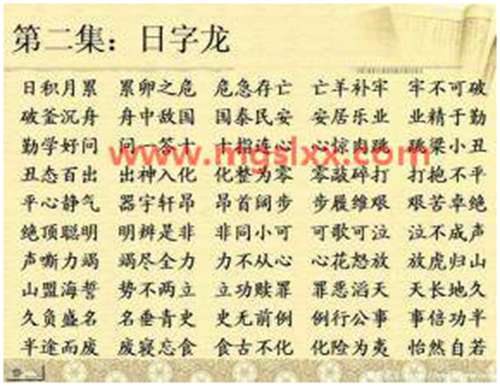 第二集：日字龙
日积月累 累卵之危 危急存亡 亡羊补牢 牢不可破
破釜沉舟 舟中敌国 国泰民安 安居乐业 业精于勤
勤学好问 问一答十 十指连心 心惊肉跳 跳梁小丑
www.mgslxx.com
丑态百出 出神入化 化整为零 零敲碎打 打抱不平
平心静气 器宇轩昂 昂首阔步 步履维艰 艰苦卓绝
绝顶聪明 明辨是非 非同小可 可歌可泣 泣不成声
声嘶力竭 竭尽全力 力不从心 心花怒放 放虎归山
山盟海誓 势不两立 立功赎罪 罪恶滔天 天长地久
久负盛名 名垂青史 史无前例 例行公事 事倍功半
半途而废 废寝忘食 食古不化 化险为夷 怡然自若